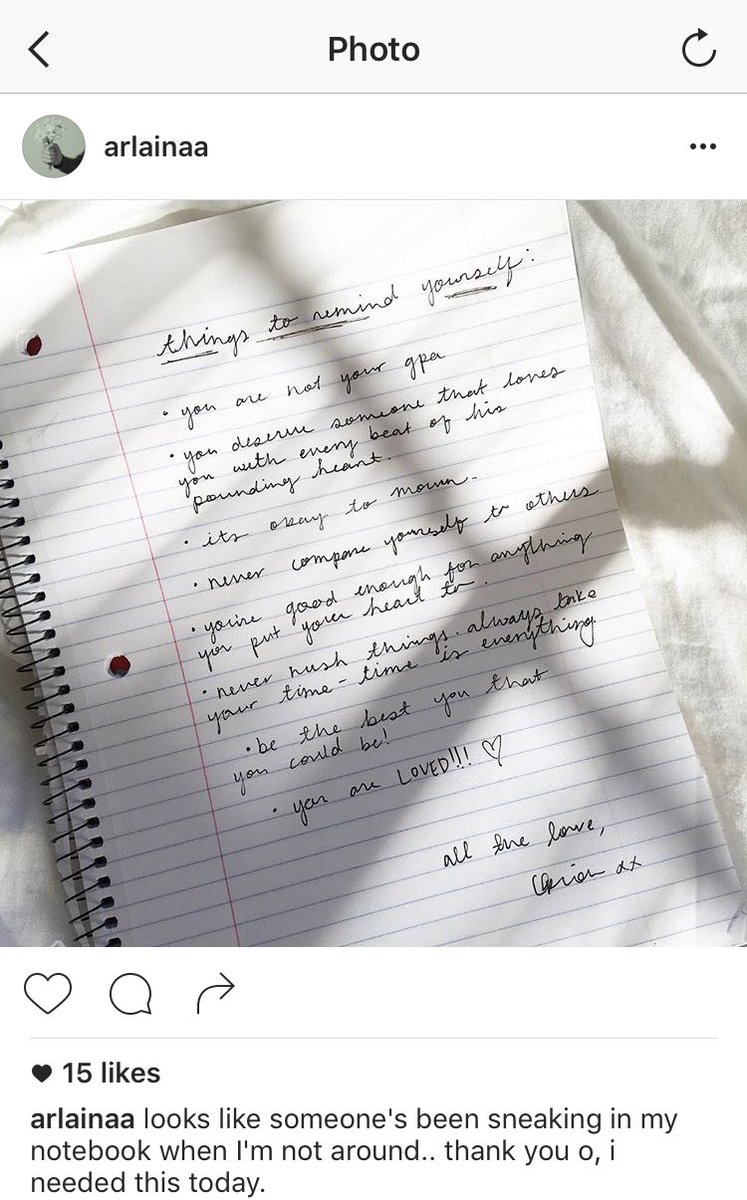 Photo
arlainaa
things to remind yourself:
• you are not your gpa
• you deserve someone that loves
you with every beat of his
pounding heart.
• its okay to mourn.
• never compare yourself to others
• you're good enough for anything
you put your heart to.
• never rush things. always take
your time - time is everything.
• be the best you that
you could be!
• you are LOVED!!! ♡
all the love,
xx
15 likes
arlainaa looks like someone's been sneaking in my
notebook when I'm not around.. thank you o, i
needed this today.